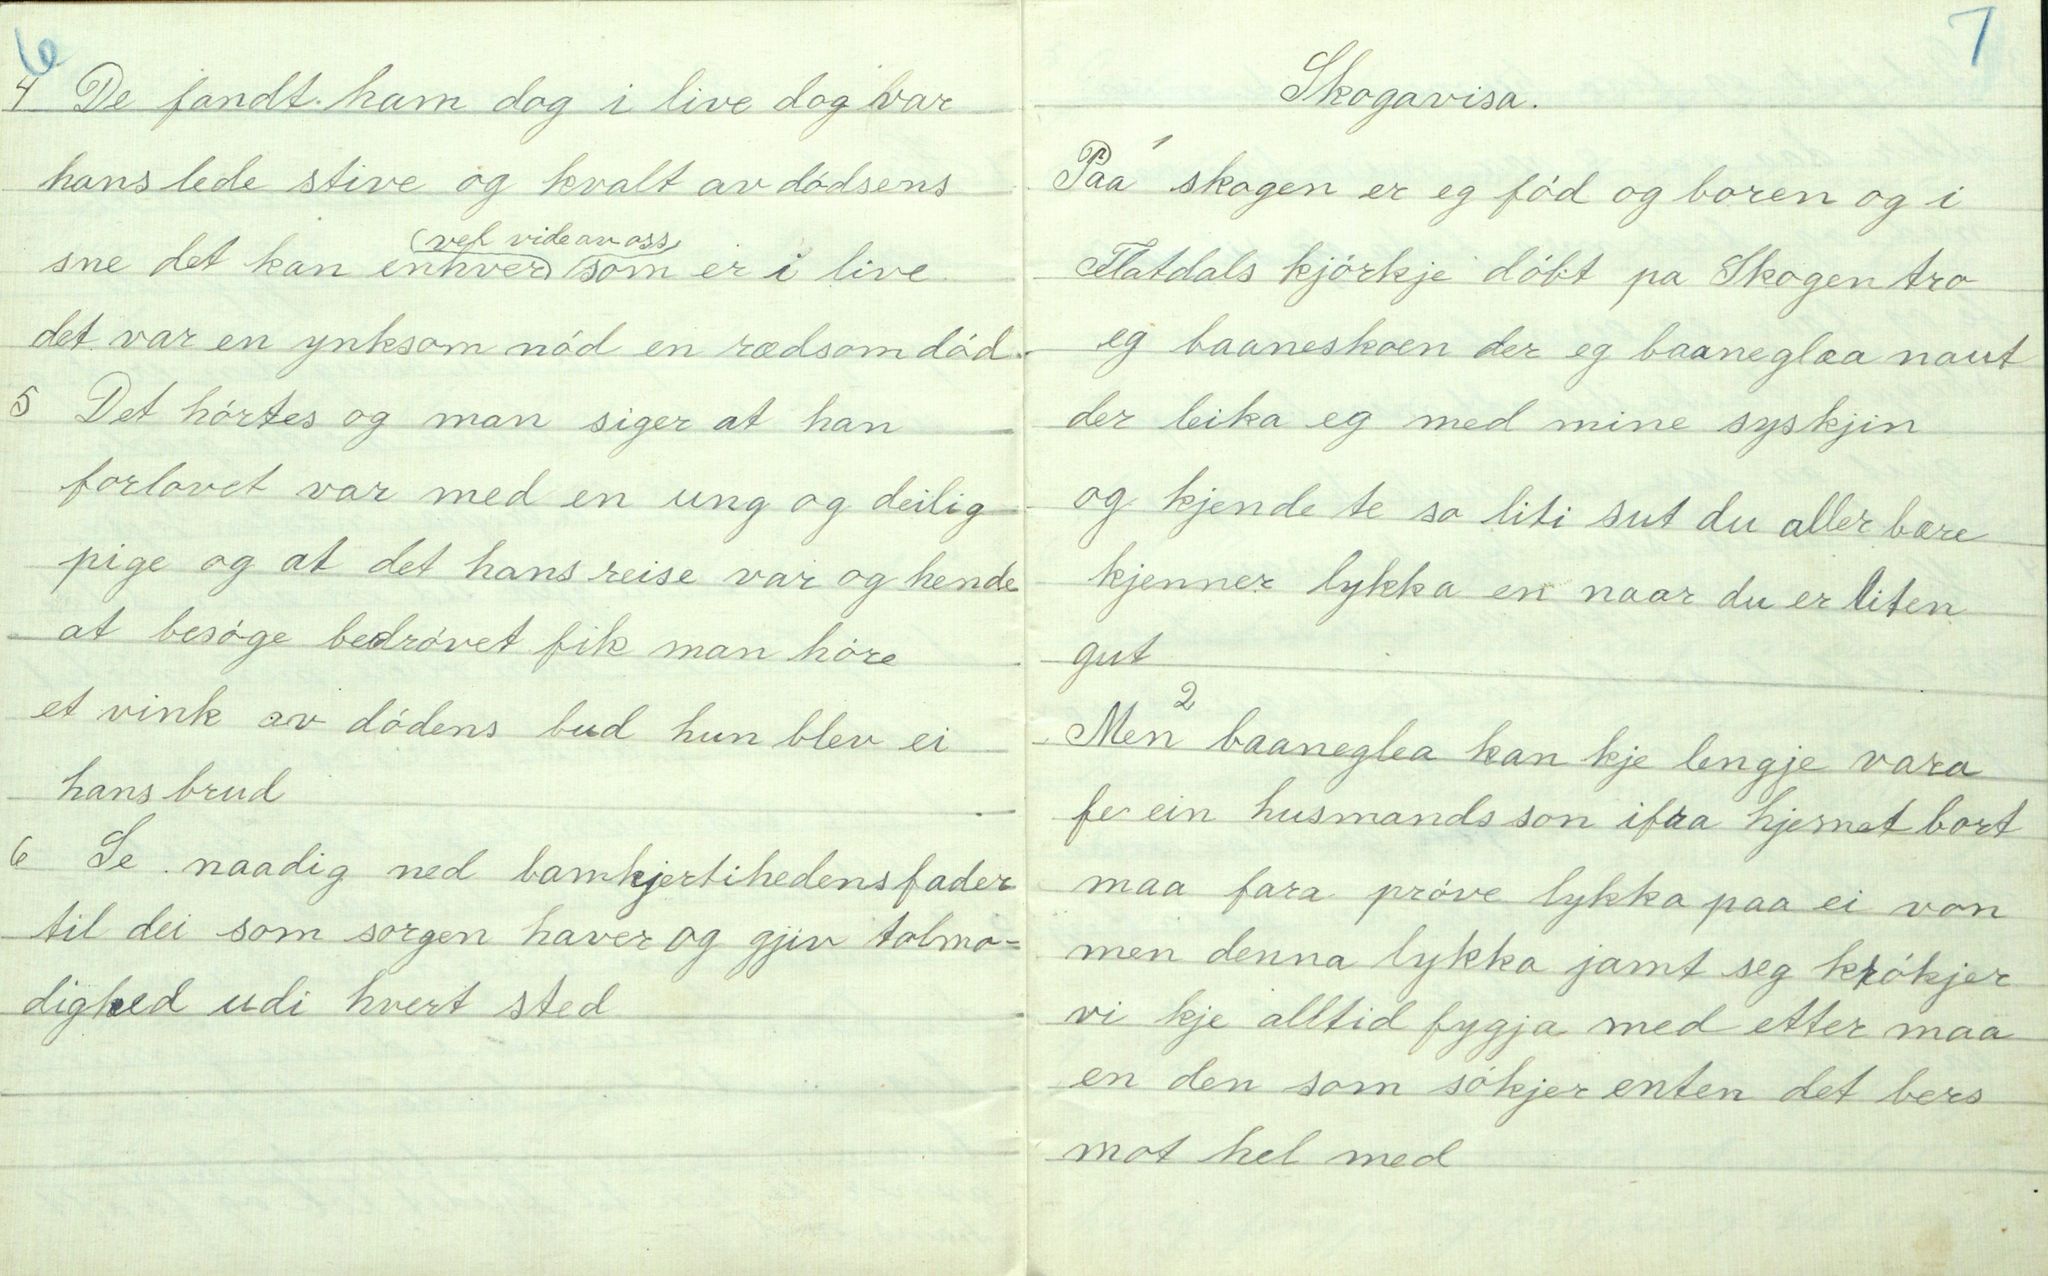 6
4 De fandt ham dog i live dog var
hans lede stive og kvalt av dödsens
(vel vide av oss)
sne det kan enhver som er i live
det var en ynksom nöd en rædsom död.
5 Det hörtes og man siger at han
forlovet var med en ung og deilig
pige og at det hans reise var og hende
at besöge bedrövet fik man höre
et vink av dödens bud hun blev ei
hans brud
6 Se naadig ned bamhjertihedens fader
til dei som sorgen haver og gjiv tolmo-
dighed udi hvert sted
7
Skogavisa.
1
Paa skogen er eg föd og boren og i
Flatdals kjörkje döbt pa Skogen tro
eg baaneskoen der eg baaneglæa naut
der leika eg med mine syskjin
og kjende te so liti sut du aller bære
kjenner lykka en naar du er liten
gut
2
Men baaneglea kan kje lengje vara
fe ein husmands son ifra hjemet bort
maa fara pröve lykka paa ei von
men denna lykka jamt seg krökjer
vi kje alltid fygja med etter maa
en den som sökjer enten det bers
mot hel med